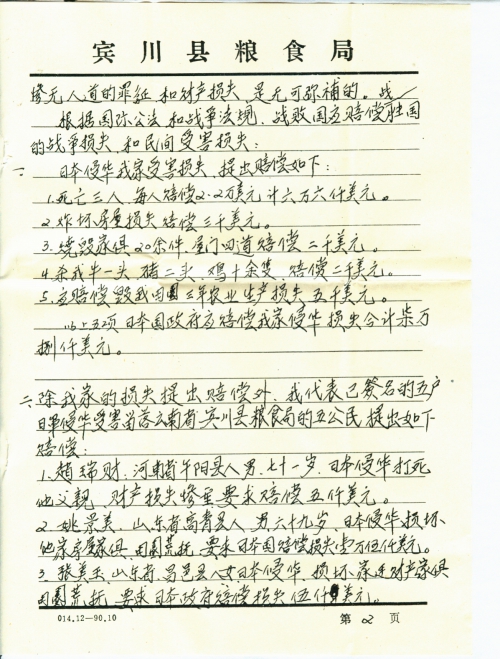 宾川县粮食局
惨无人道的罪征和财产损失,是无可弥补的。战
根据国际公法和战争法规,战败国应赔偿胜国
的战争损失和民间受害损失:
一、日本侵华我家受害损失,提出赔偿如下:
1.死亡三人,每人赔偿2.2万美元计六万六仟美元。
2.炸坏房屋损失赔偿三千美元。
3.烧毁家俱20余件,屋门四道赔偿二千美元。
4.杀我牛一头,猪二头,鸡十余隻,赔偿二千美元。
5.应赔偿毁我田园三年农业生产损失五千美元。
以上五项日本国政府应赔偿我家侵华损失合计柒万
捌仟美元。
二、除我家的损失提出赔偿外,我代表已签名的五户
日军侵华受害留落云南省宾川县粮食局的五公民,提出如下
赔偿:
1.赵瑞财,河南省午阳县人男,七十一岁,日本侵华打死
他父親,财产损失惨重,要求赔偿五仟美元。
2.姚景美,山东省高青县人,男六十九岁,日本侵华损坏
他家房屋家俱,田園荒抚,要求日本国赔偿损失壹万伍仟美元。
3.张美玉,山东省昌邑县人女日本侵华,损坏家廷财产家俱
田園荒抚,要求日本政府赔偿损失伍仟美元。
014.12—90.10
第2页